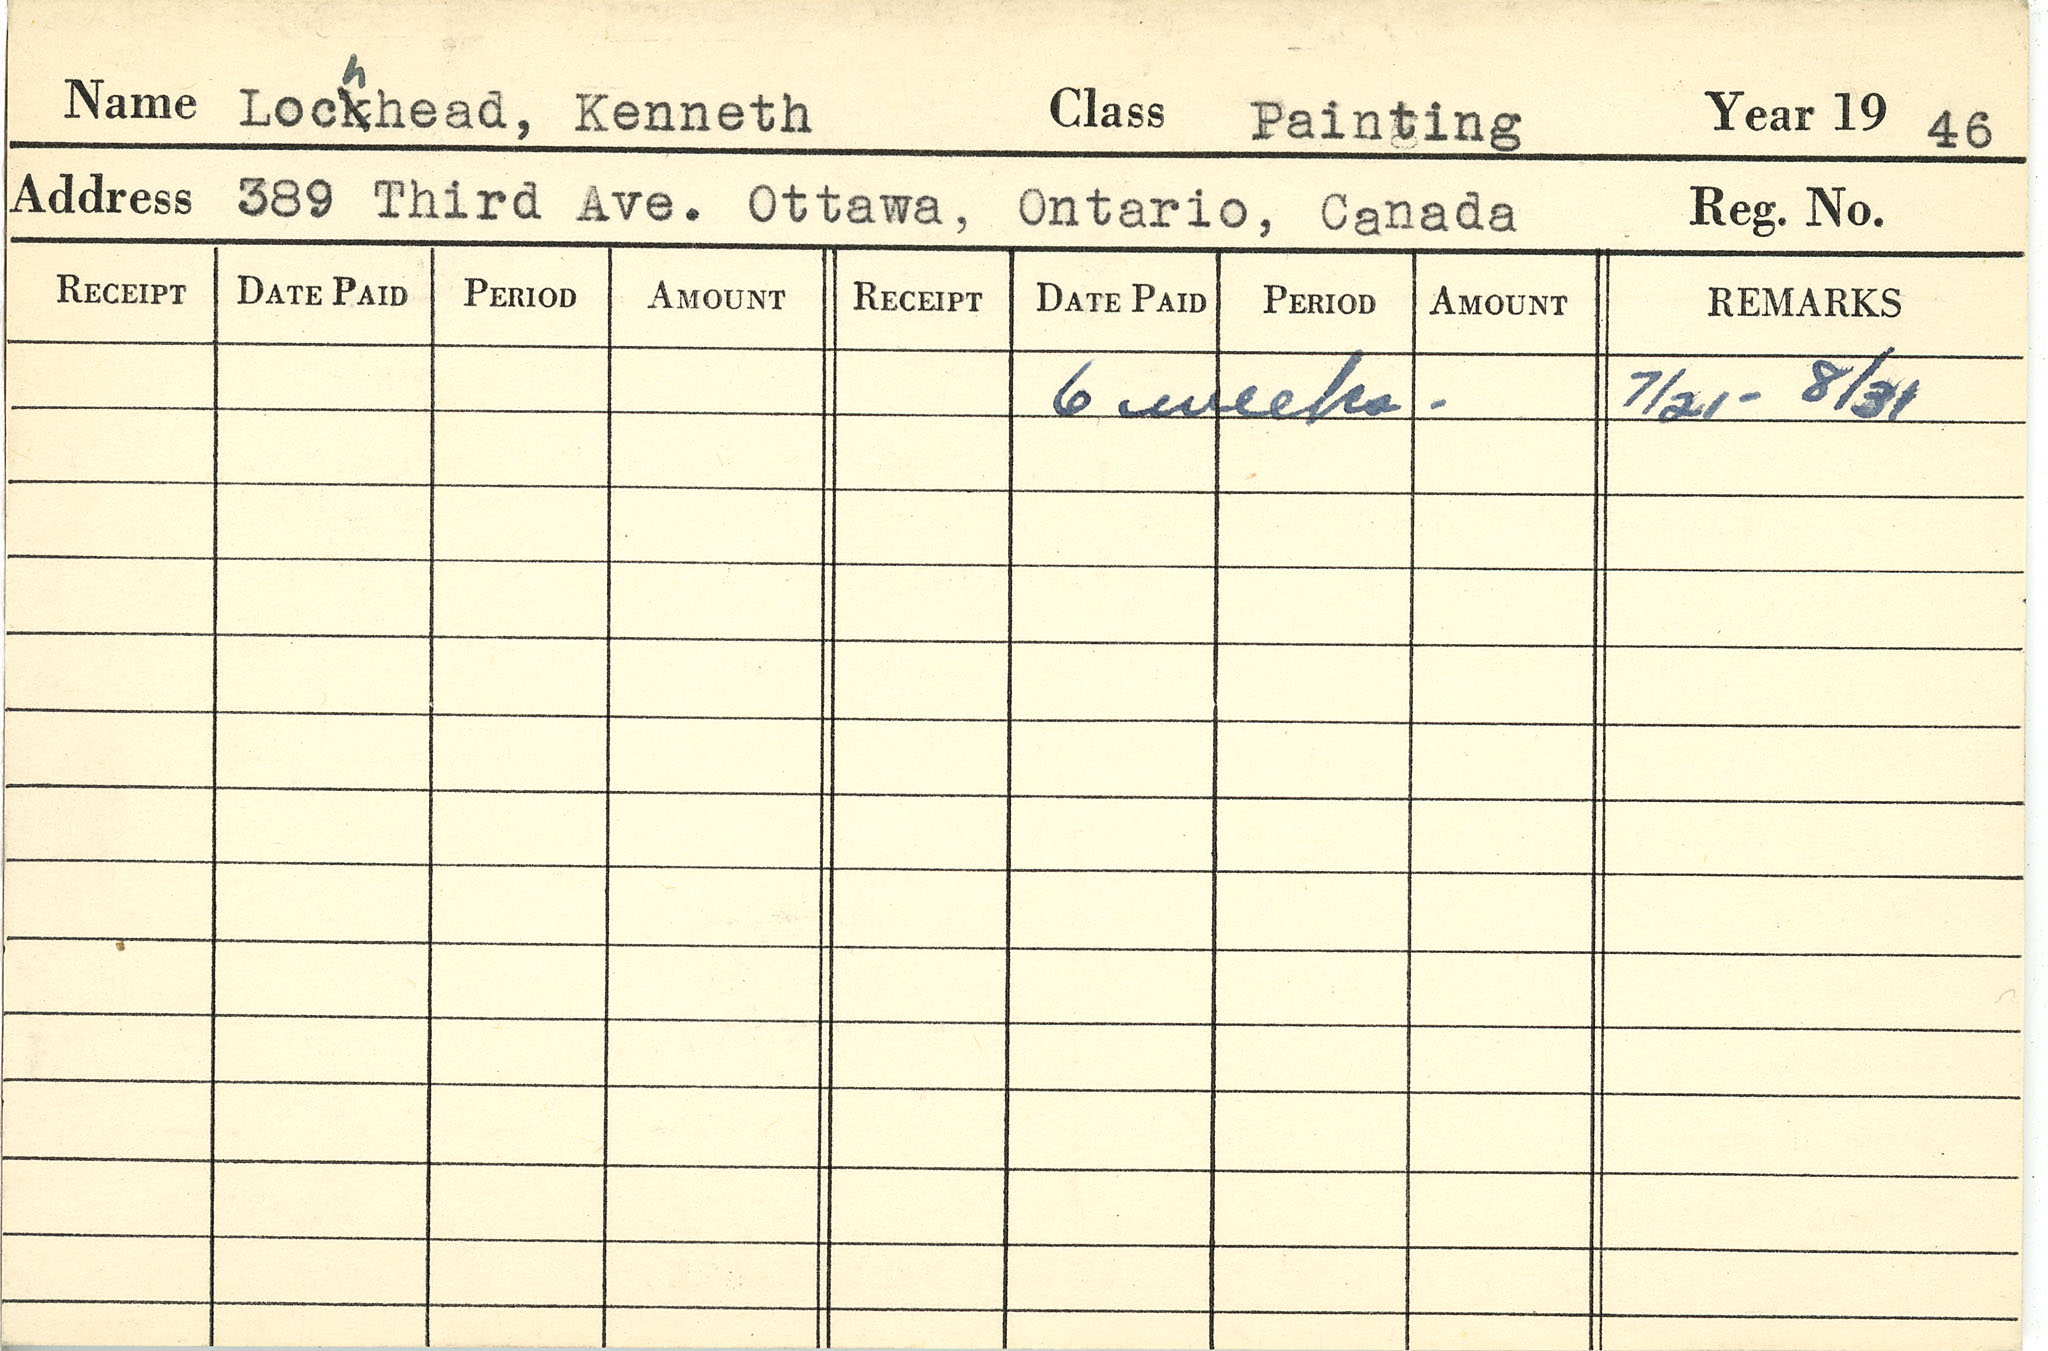 Name Lochhead, Kenneth Class Painting Year 19 46
Address 389 Third Ave. Ottawa, Ontario, Canada Reg. No.
RECEIPT DATE PAID PERIOD AMOUNT RECEIPT DATE PAID PERIOD AMOUNT REMARKS
6 weeks - 7/21 - 8/31